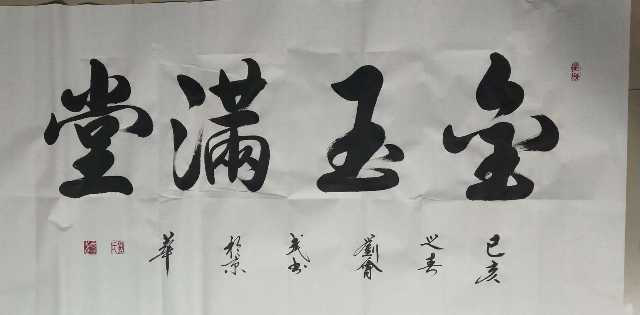 金玉滿堂
己亥之春劉會武书於京華